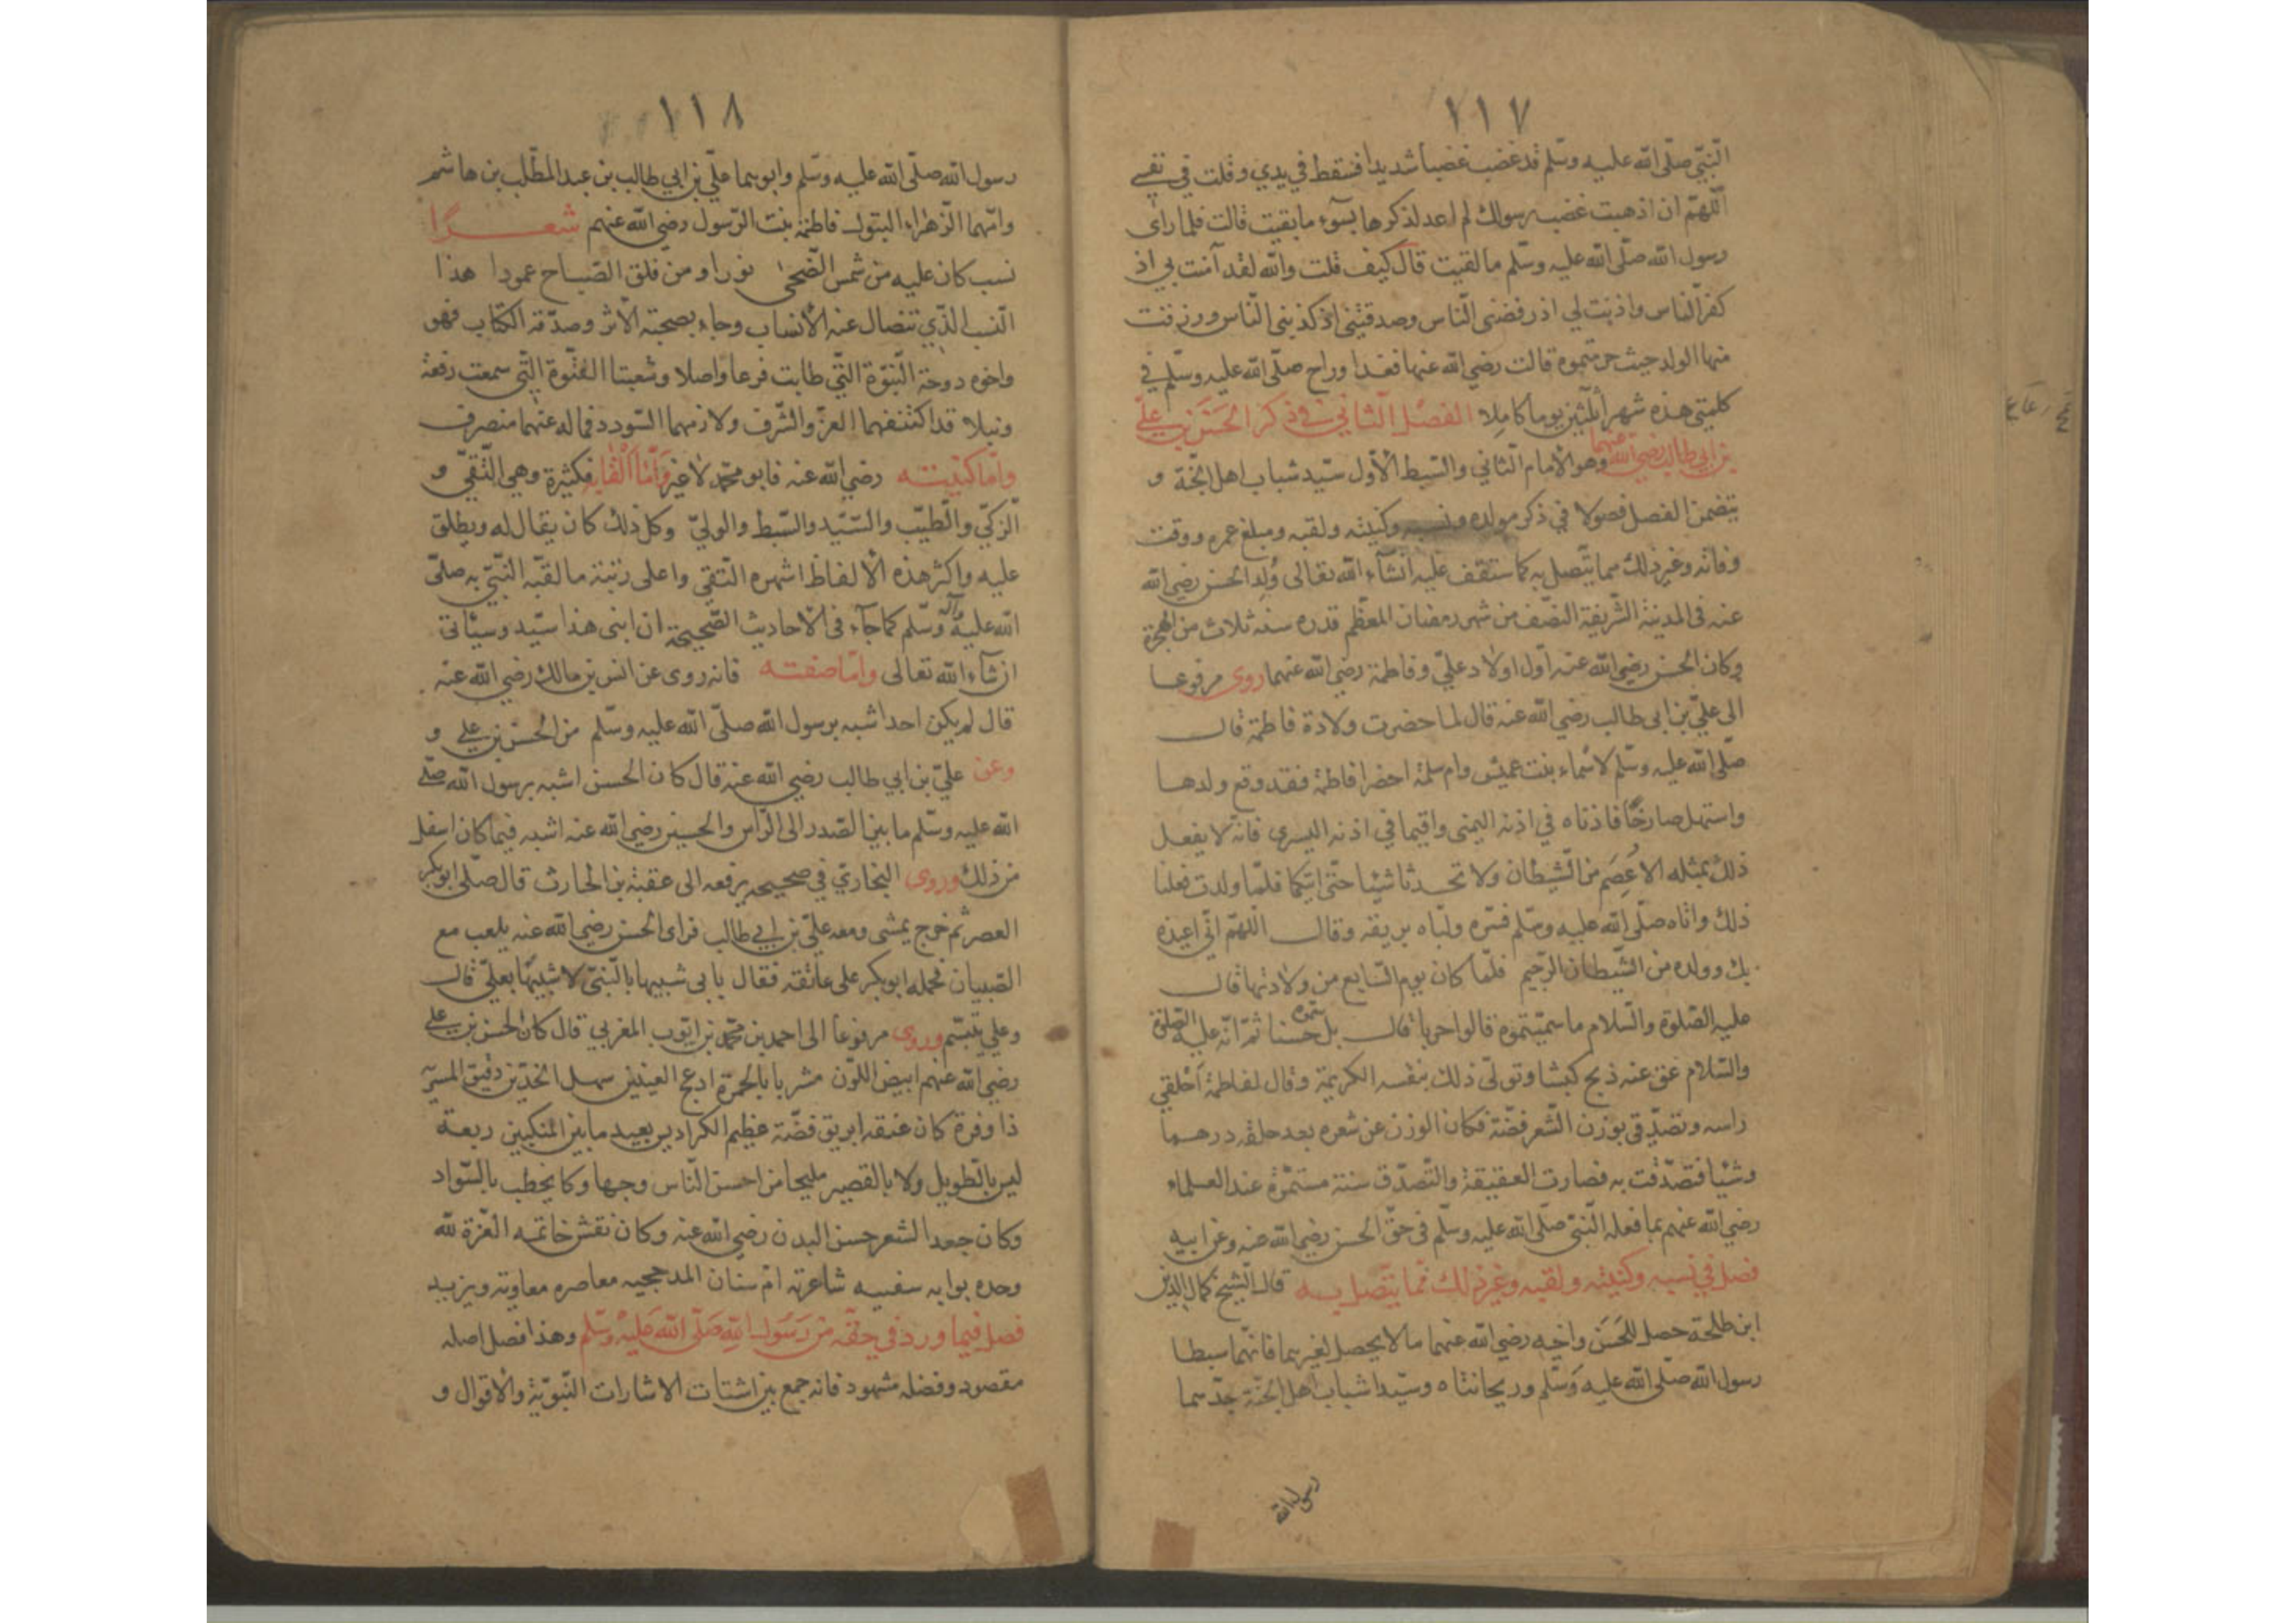 ١١٧
النبي صلى الله عليه وسلم قد غضب غضبا شديدا فسقط في يدي وقلت في نفسي
اللهم ان اذهبت غضب رسولك لم اعد لذكرها بسوء ما بقيت قالت فلما راى
رسول الله صلى الله عليه وسلم ما لقيت قال كيف قلت والله لقد آمنت بي اذ
كفر الناس واذنت لي اذ رفضني الناس وصدقتني اذ كذبني الناس ورزقت
منها الولد حيث حرمتموه قالت رضي الله عنها فغدا وراح صلى الله عليه وسلم في
كليتي هذه شهر ثلثين يوما كاملا الفصل الثاني في ذكر الحسن بن علي
بن ابي طالب رضي الله عنهما وهو الامام الثاني والسبط الاول سيد شباب اهل الجنة و
يتضمن الفصل فصولا في ذكر مولده ونسبه وكنيته ولقبه ومبلغ عمره ووقت
وفاته وغير ذلك مما يتصل به كما ستقف عليه انشآء الله تعالى وُلِد الحسن رضي الله
عنه في المدينة الشريفة النصف من شهر رمضان المعظم قدره سنة ثلاث من الهجرة
وكان الحسن رضي الله عنه اول اولاد علي وفاطمة رضي الله عنهما روى مرفوعا
الى علي بن ابى طالب رضي الله عنه قال لما حضرت ولادة فاطمة قال
صلى الله عليه وسلم لاسماء بنت عميس وام سلمة احضرا فاطمة فقد وقع ولدها
واستهل صارخًا فاذناه في اذنه اليمنى واقيما في اذنه اليسرى فانه لا يفعل
ذلك بمثله الا عُصِمَ من الشيطان ولا تحدثا شيئا حتى اتيكما فلما ولدت فعلنا
ذلك واتاه صلى الله عليه وسلم فسره ولباه بريقه وقال اللهم اني اعيذه
بك وولده من الشيطان الرجيم فلما كان يوم السابع من ولادتها قال
عليه الصلوة والسلام ما سميتموه قالوا حربا قال بل سموه حسنا ثم انه عليه الصلوة
والسلام عق عنه ذبح كبشا وتولى ذلك بنفسه الكريمة وقال لفاطمة اَحْلقي
راسه وتصدقي بوزن الشعر فضة فكان الوزن عن شعره بعد حلقه درهما
وشيئا فتصدقت به فصارت العقيقة والتصدق سنة مستمرة عند العلماء
رضي الله عنهم بما فعله النبي صلى الله عليه وسلم في حق الحسن رضي الله عنه وعن ابيه
فصل في نسبه وكنيته ولقبه وغير ذلك مما يتصل به قال الشيخ كمال الدين
ابن طلحة حصل للحَسَن واخيه رضي الله عنهما ما لا يحصل لغيرهما فانهما سبطا
رسول الله صلى الله عليه وَسَلم وريحانتاه وسيدا شباب اهل الجنة جدهما
رسول الله
١١٨
رسول الله صلى الله عليه وسلم وابوهما علي بن ابي طالب بن عبد المطلب بن هاشم
وامهما الزهراء البتول فاطمة بنت الرسول رضي الله عنهم شعـــرًا
نسب كان عليه من شمس الضحى نورا ومن فلق الصباح عمودا هذا
النسب الذي تتضال عنه الأنساب وجاء بصحته الأثر وصدقه الكتاب فهو
واخوه دوحة النبوة التي طابت فرعا واصلا وشعبتا الفتوة التي سمعت رفعة
ونبلا قد اكتنفهما العز والشرف ولازمهما السودد فماله عنهما منصرف
واما كنيته رضي الله عنه فابو محمد لا غير وَأمّا اَلْقابه فكثيرة وهي التقي و
الزكي والطيب والسيد والسبط والولي وكل ذلك كان يقال له ويطلق
عليه واكثر هذه الالفاظ اشهره التقي واعلى رتبة ما لقبه النبي به صلى
الله عليه وآله وسلم كما جآء في الاحاديث الصحيحة ان ابنى هذا سيد وسيئاتى
انشآء الله تعالى واما صفته فانه روى عن انس بن مالك رضي الله عنه
قال لم يكن احد اشبه برسول الله صلى الله عليه وسلم من الحسن بن علي و
وعن علي بن ابي طالب رضي الله عنه قال كان الحسن اشبه برسول الله صلى
الله عليه وسلم ما بين الصدر الى الراس والحسين رضي الله عنه اشبه فيما كان اسفل
من ذلك وروى البخاري في صحيحه يرفعه الى عقبة بن الحارث قال صلى ابو بكر
العصر ثم خرج يمشى ومعه علي بن ابي طالب فراى الحسن رضي الله عنه يلعب مع
الصبيان فحمله ابو بكر على عاتقه فقال يا بى شبيها بالنبي لا شبيها بعلي قال
وعلي يتبسم وروى مرفوعا الى احمد بن محمد بن ايوب المغربي قال كان الحسن بن علي
رضي الله عنهم ابيض اللون مشربا بالحمرة ادعج العينين سهل الخدين دقيق المسربة
ذا وفرة كان عنقه ابريق فضة عظيم الكراديس بعيد ما بين المنكبين ربعة
ليس بالطويل ولا بالقصير مليحا من احسن الناس وجها وكا يخطب بالسواد
وكان جعد الشعر حسن البدن رضي الله عنه وكان نقش خاتمه العزة لله
وحده بوابه سفيه شاعرته ام سنان المدحجيه معاصره معاوية ويزيد
فصل فيما ورد في حقه من رَسول الله صَلى الله عَليه وسلم وهذا فصل اصله
مقصود وفضله مشهود فانه جمع بين اشتات الاشارات النبوية والاقوال و